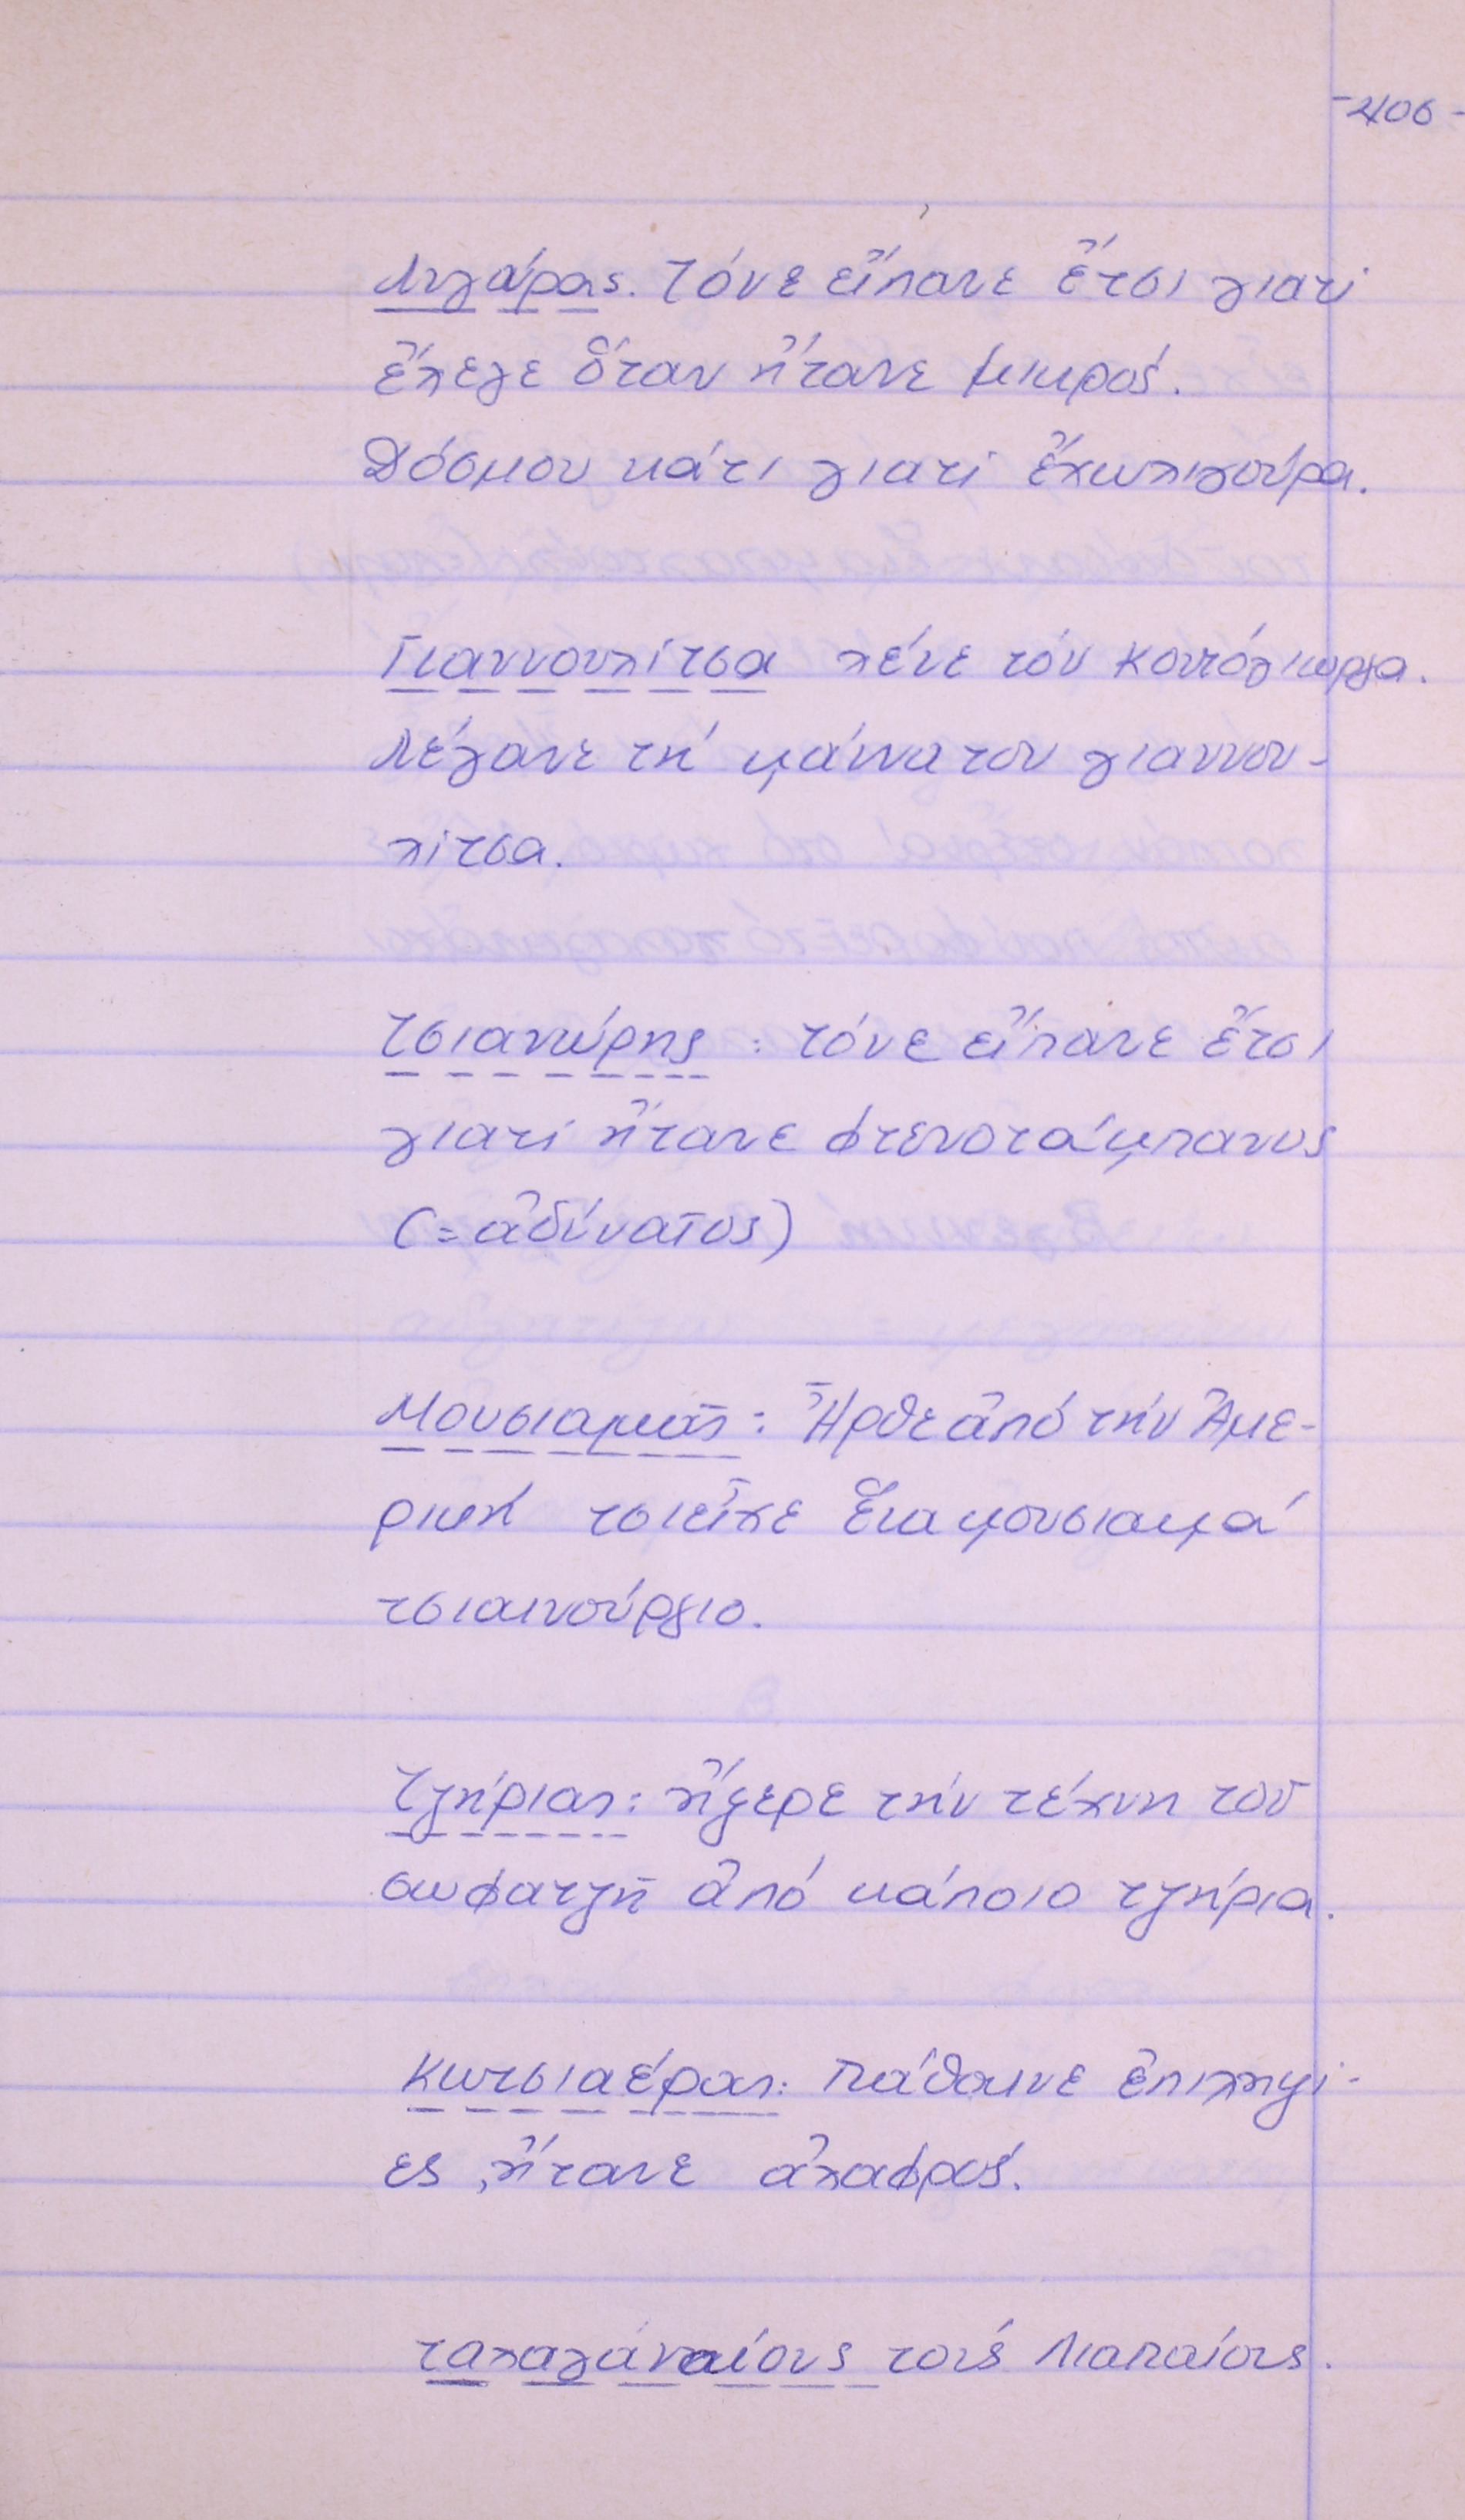 -406-
Λιγάρας. Τόνε εἴπανε ἔτσι γιατί
ἔλεγε ὅταν ἤτανε μικρός.
Δόσμου κάτι γιατί ἔχωλιγούρα.
Γιαννουλίτσα λένε τόν Κοντόγιωργα.
Λέγανε τή μάννα του γιαννου-
λίτσα.
Τσιανύρης : τόνε εἴπανε ἔτσι
γιατί ἤτανε φτενοτάμπανος
(=ἀδύνατος)
Μουσιαμᾶς: Ἦρθε ἀπό τήν Ἀμε-
ρική τσιεἶχε ἕνα μουσιαμά
τσιαινούργιο.
Τζήριας: ἤξερε τήν τέχνη τοῦ
σωφατζῆ ἀπό κάποιο τζήρια.
Κωτσιαέρας: Πάθαινε ἐπιληψί-
ες, ἤτανε ἀλαφρός.
ταλαγάναίους τούς Λιαπαίους.